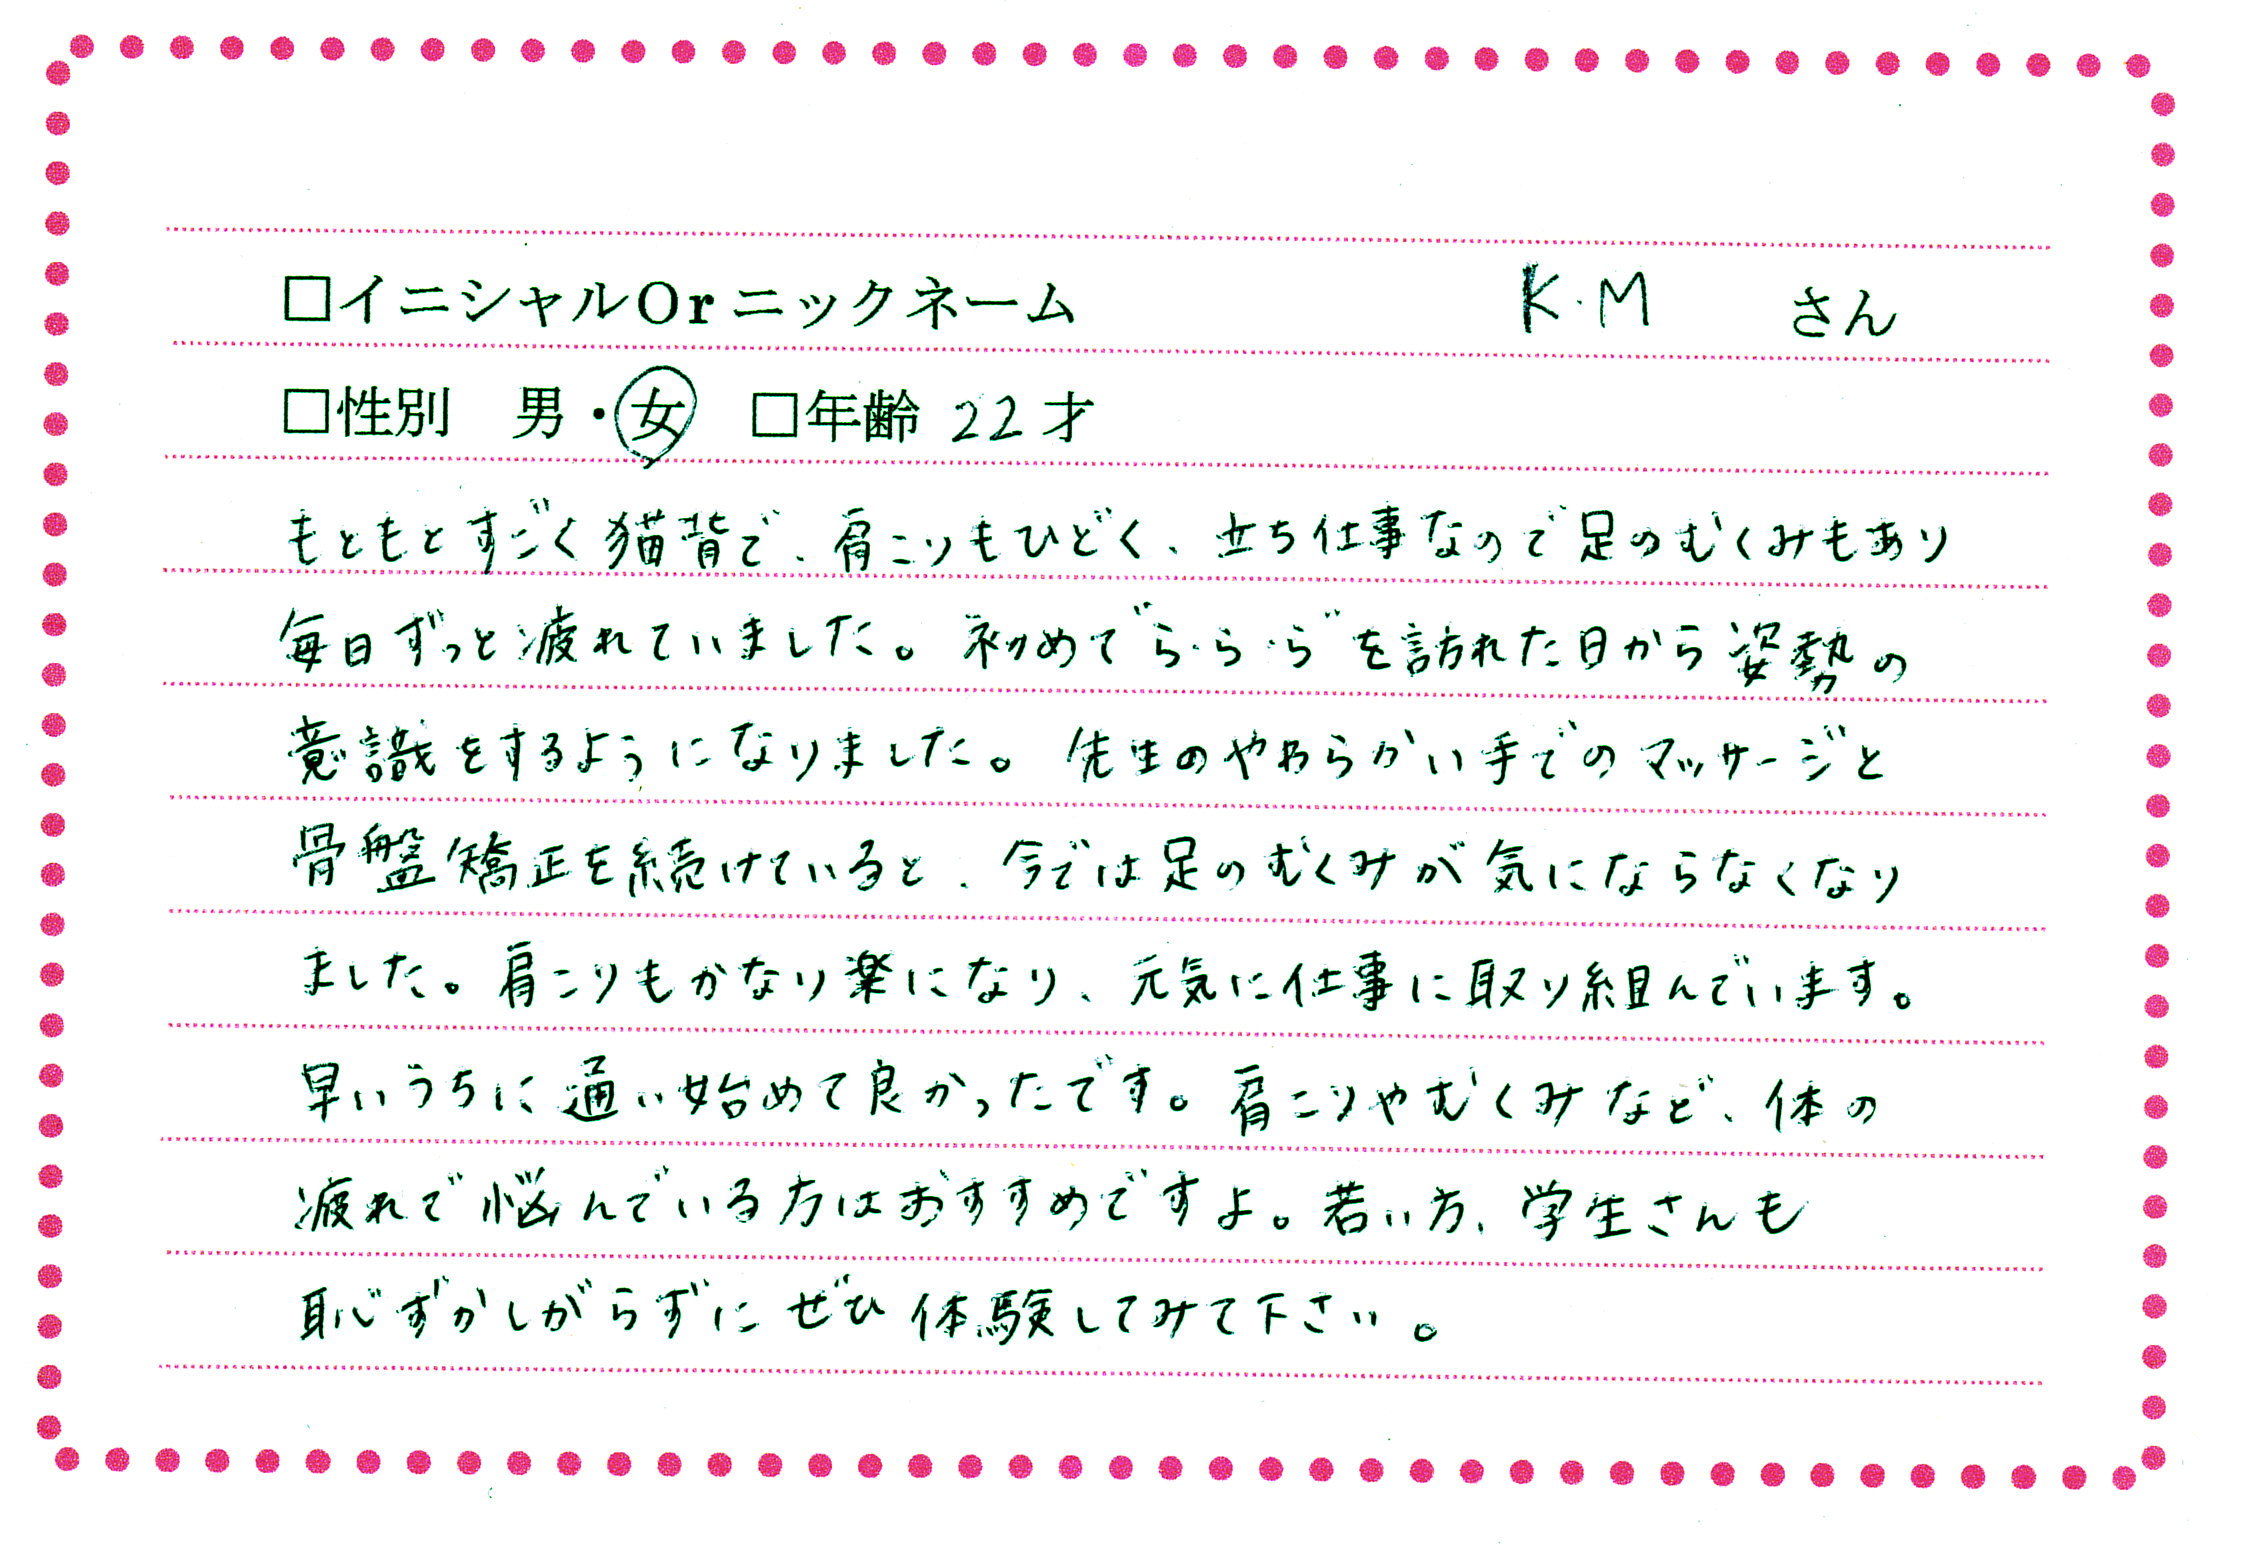 □イニシャルOrニックネーム K.M さん
□性別 男・女 □年齢 22才
もともとすごく猫背で、肩こりもひどく、立ち仕事なので足のむくみもあり
毎日ずっと疲れていました。初めて"ら・ら・ら"を訪れた日から姿勢の
意識をするようになりました。先生のやわらかい手でのマッサージと
骨盤矯正を続けていると、今では足のむくみが気にならなくなり
ました。肩こりもかなり楽になり、元気に仕事に取り組んでいます。
早いうちに通い始めて良かったです。肩こりやむくみなど、体の
疲れで悩んでいる方はおすすめですよ。若い方、学生さんも
恥ずかしがらずにぜひ体験してみて下さい。